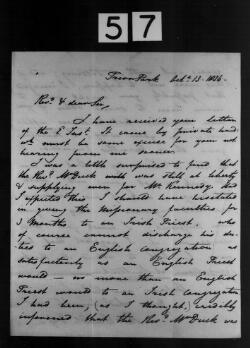 57
Prior Park Oct. 13. 1836.
Revd. & dear Sir,
I have received your letter
of the 8 Inst. It came by private hand
wh. must be some excuse for your not
hearing from me sooner.
I was a little surprised to find that
the Revd. Mr Duck with was still at liberty
& supplying even for Mr. Kennedy. And
I expected this I should have hesitated
in giving the Missionary faculties for
3 Months to an Irish Priest, who
of course cannot discharge his du-
ties to an English congregation as
satisfactorily as an English Priest
would — no more than an English
Priest would to an Irish Congregation
I had been, (as I thought,) credibly
informed that the Revd. Mr Duck was